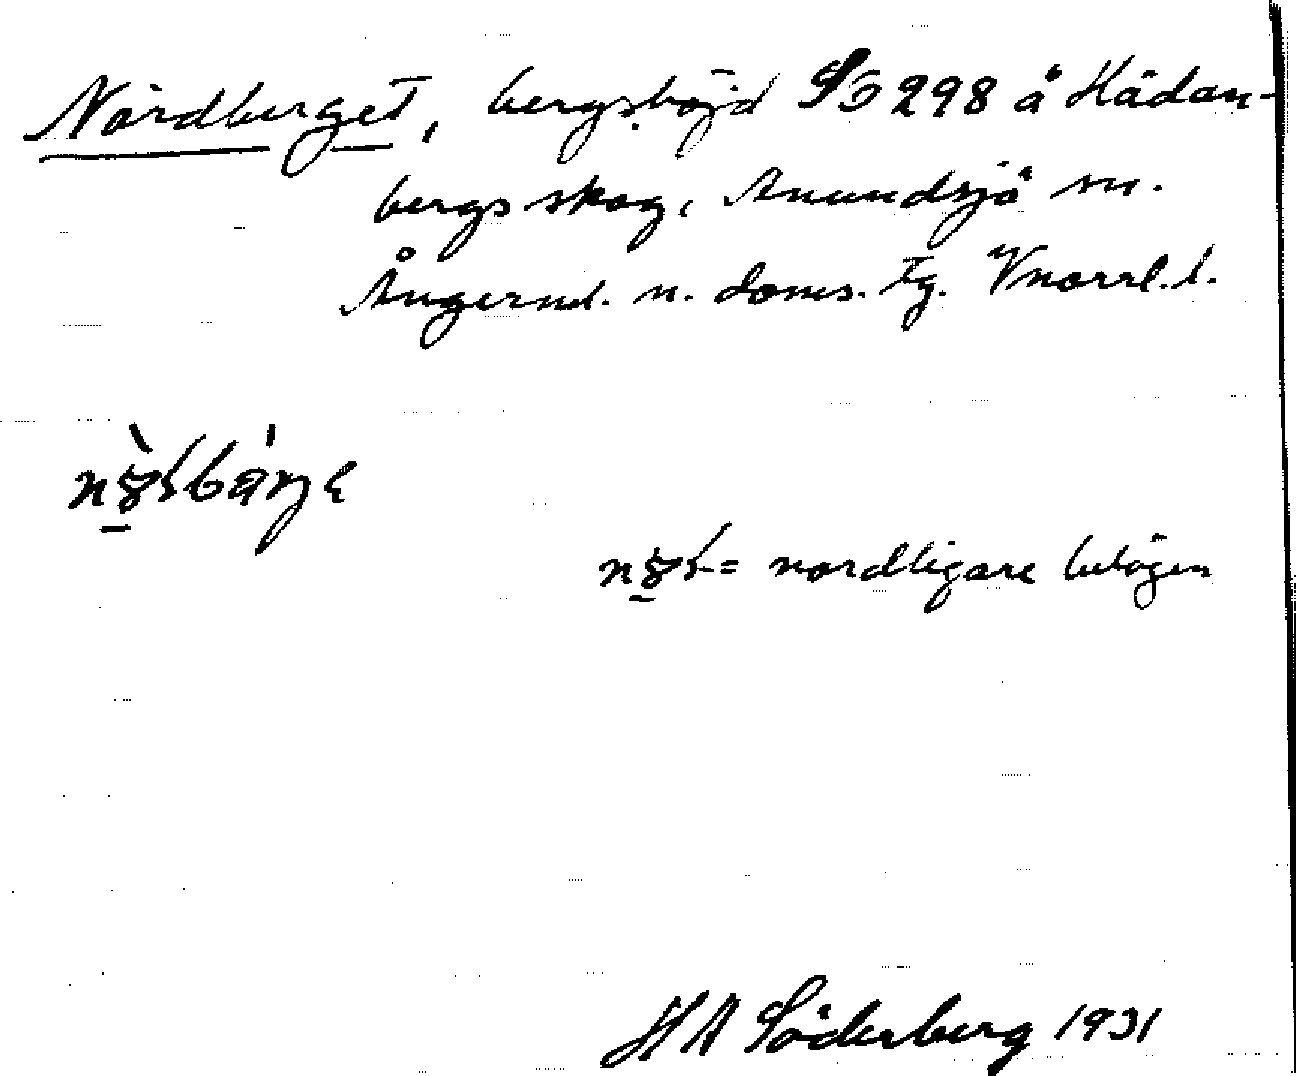 Nördberget, bergshöjd S6 298 å Hädan-
bergs skog, Anundsjö sn.
Ångerml. n. doms. tg. Vnorrl. l.
nordligare belägen
H A Söderberg 1931